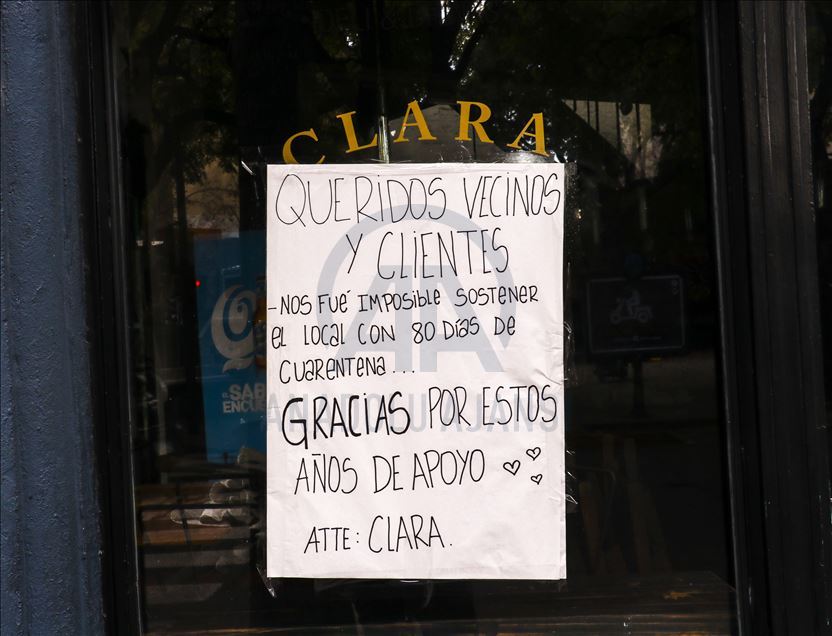 CLARA
QUERIDOS VECINOS
Y CLIENTES
-NOS FUÉ IMPOSIBLE SOSTENER
EL LOCAL CON 80 DÍAS DE
CUARENTENA...
GRACIAS POR ESTOS
AÑOS DE APOYO
ATTE: CLARA.
AA
ANADOLU AJANS